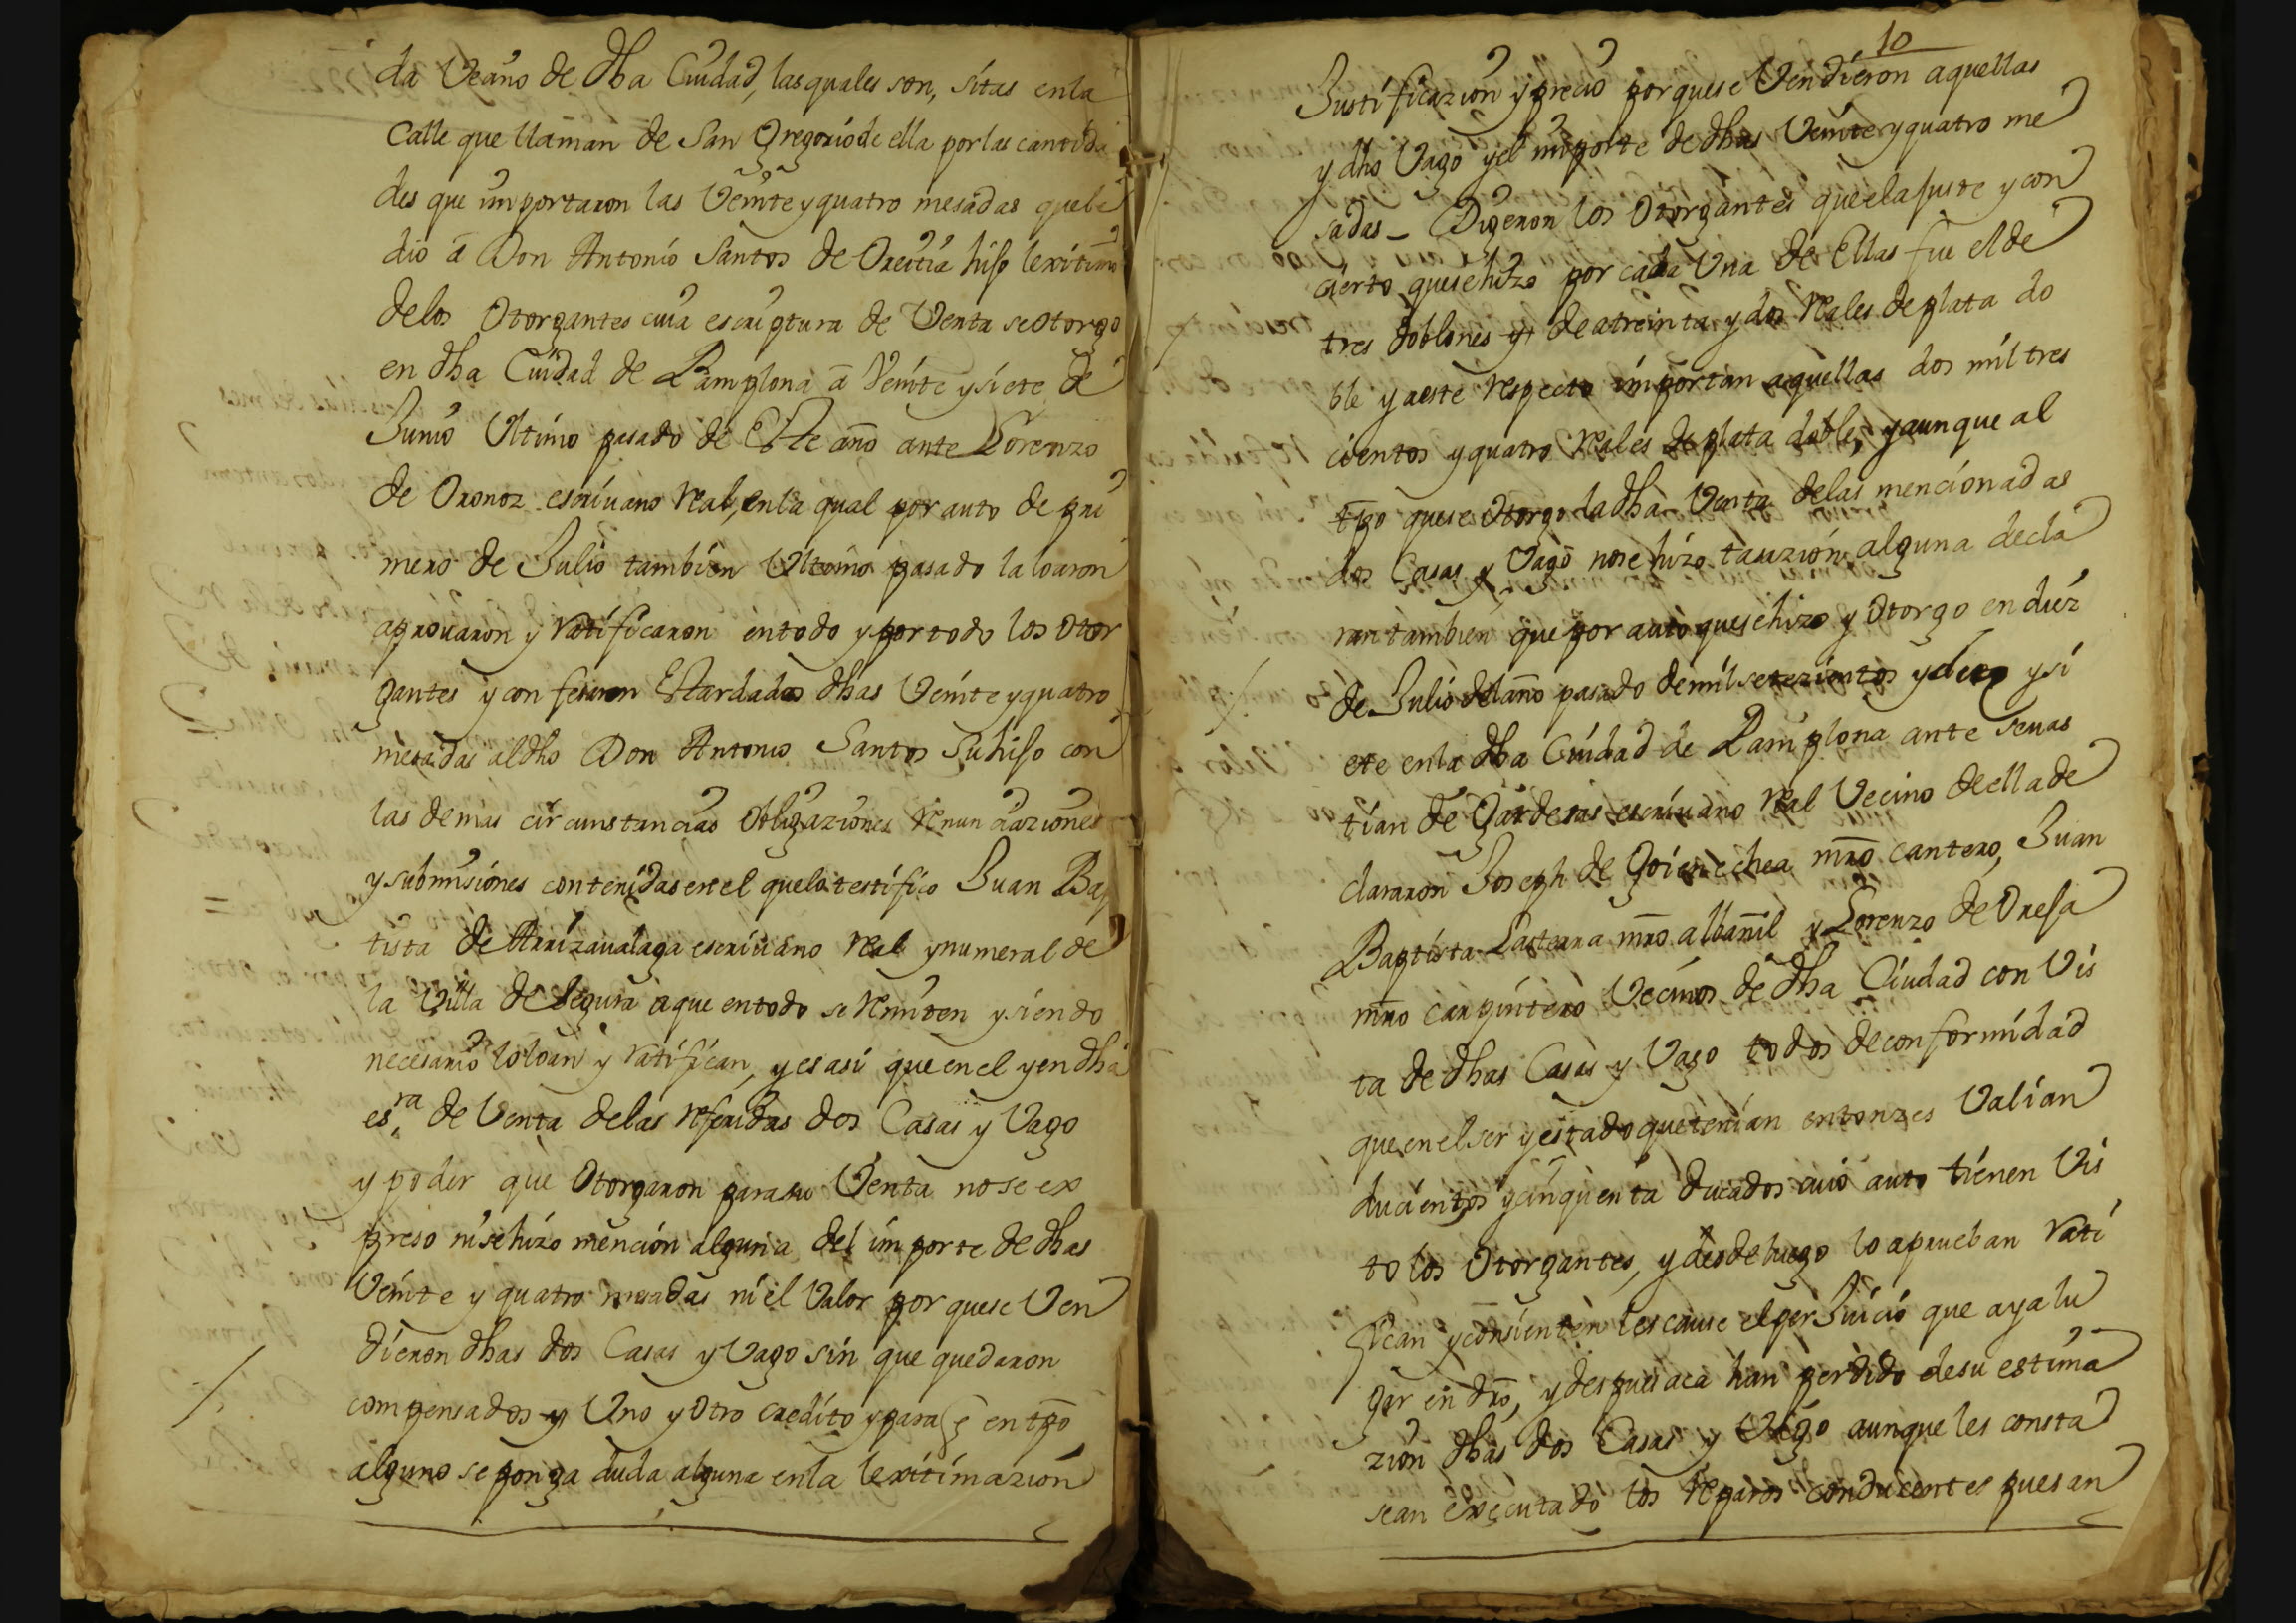 da Vecino de dha Ciudad, las quales son, sitas en la
Calle que llaman de San Gregorio de ella por las cantida
des que importaron las Veinte y quatro mesadas que le
dio a Don Antonio Santos de Oreitia hijo lexitimo
de los Otorgantes cuia escriptura de Venta se otorgo
en dha Ciudad de Pamplona a Veinte y siete de
Junio Ultimo pasado de Este año ante Lorenzo
de Oronoz escriuano Real, en la qual por auto de pri
mero de Julio tambien Ultimo pasado la loaron
aprouaron y Ratificaron en todo y por todo los Otor
gantes y confesaron Estar dadas dhas Veinte y quatro
mesadas al dho Don Antonio Santos Su hijo con
las demas circunstancias obligaziones Renunciaziones
y submisiones contenidas en el que lo testifico Juan Bap
tista de Arrizaualaga escriuano Real y numeral de
la Villa de Segura a que en todo se Remiten y siendo
necesario lo loan y Ratifican, y es asi que en el y en dha
es.ra de Venta de las Referidas dos Casas y Vago
y poder que Otorgaron para su Venta no se ex
preso ni se hizo mención alguna del importe de dhas
Veinte y quatro mesadas ni el Valor por que se Ven
dieron dhas dos Casas y Vago sin que quedaron
compensados y Uno y Otro credito y para q en tpo
alguno se ponga duda alguna en la lexitimazion
10
Justificazion y precio por que se Vendieron aquellas
y dho Vago y el importe de dhas Veinte y quatro me
sadas _ Digeron los Otorgantes que el ajuste y con
cierto que se hizo por cada Una de Ellas fue el de
tres doblones y de a treinta y dos Reales de plata do
ble y a este respecto importan aquellas dos mil tres
cientos y quatro Reales de plata doble, y aunque al
tpo que se Otorgo la dha Venta de las mencionadas
dos Casas y Vago no se hizo tasazión alguna decla
ran tambien que por auto que se hizo y Otorgo en diez
de Julio del año pasado de mil setezientos y diez y si
ete en la dha Ciudad de Pamplona ante Seuas
tian de Garderas escriuano Real Vecino de ella de
clararon Joseph de Goienechea mro cantero, Juan
Baptista Lasterra mro albañil y Lorenzo de Oreja
mro carpintero Vecinos de dha Ciudad con Vis
ta de dhas Casas y Vago todos de conformidad
que en el ser y estado que tenian entonzes Valian
ducientos y cinquenta ducados cuio auto tienen Vis
to los Otorgantes, y desde luego lo aprueban Rati
fican y consienten les cause el perJuicio que aya lu
gar en dro, y despues aca han perdido de su estima
zión dhas dos Casas y Vago aunque les consta
sean executado los Reparos conducentes pues an